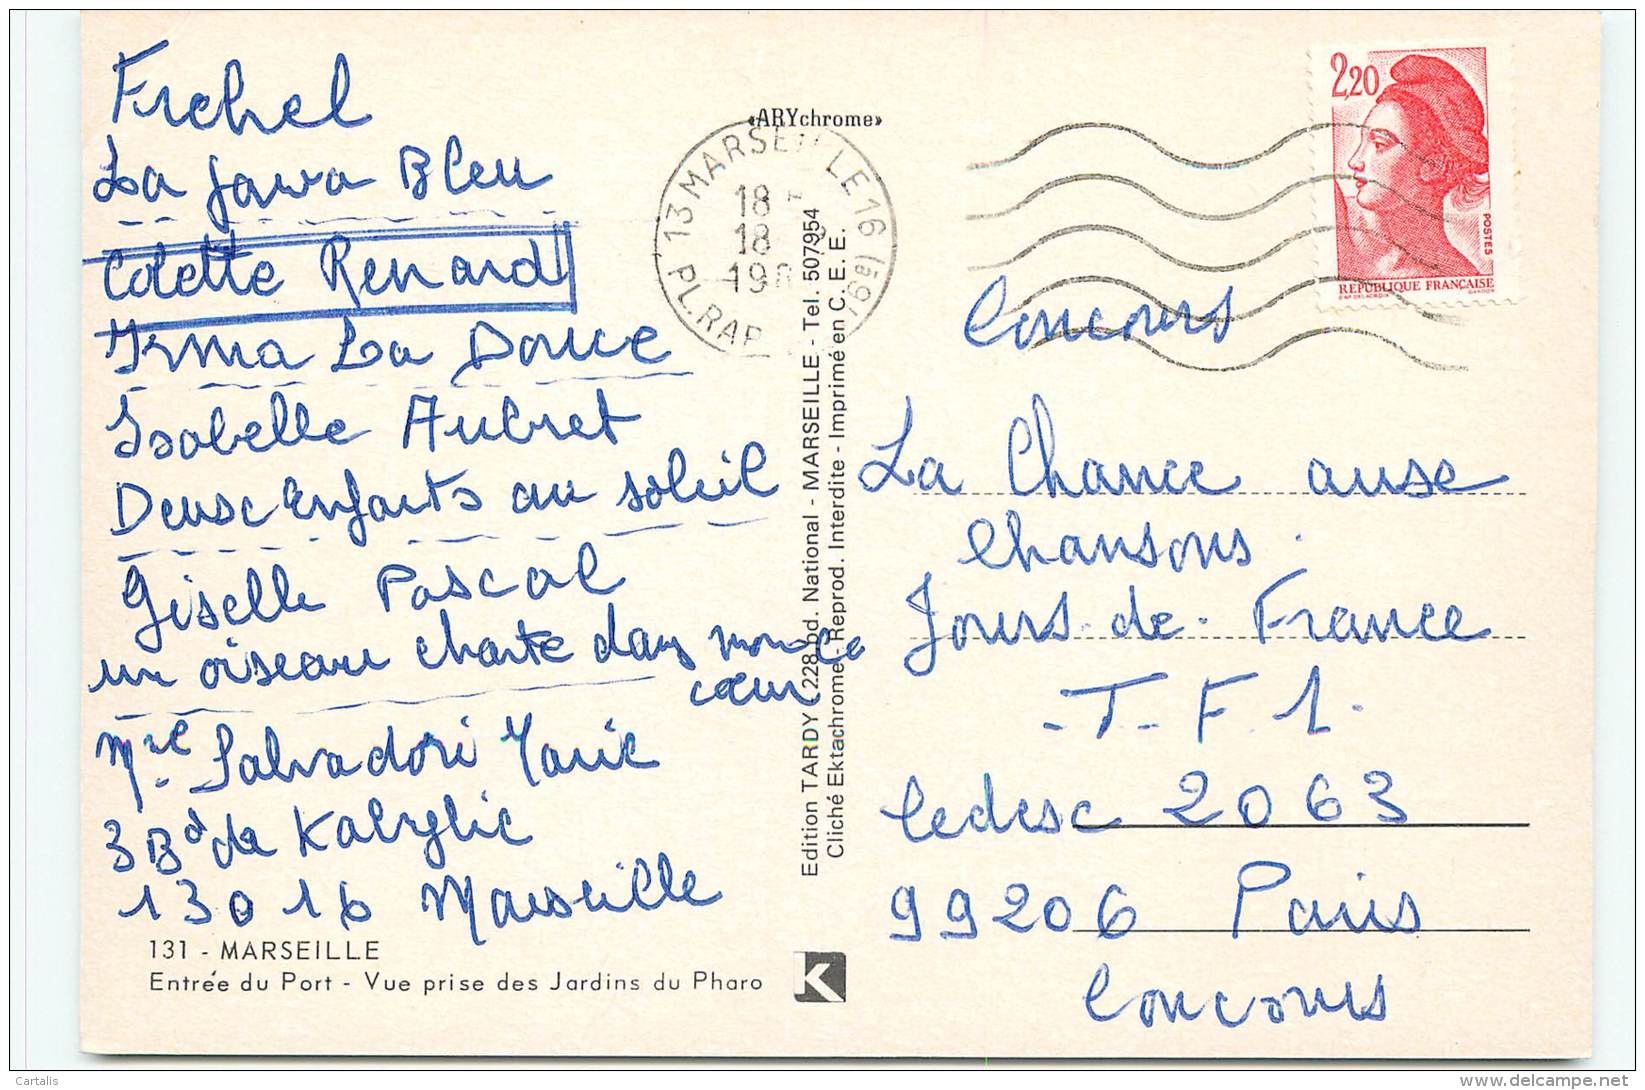 Frehel
La Java Bleu
Colette Renard
Irma La Douce
Isabelle Aubret
Deusc Enfants au soleil
Giselle Pascal
un oiseau chante dans mon
cœur
Mme Salvadori Marie
3 Bd de Kabylie
13016 Marseille
131 - MARSEILLE
Entrée du Port - Vue prise des Jardins du Pharo
«ARYchrome»
13 MARSEILLE 16 (
18
18
19
PL. RAP
Edition TARDY - 228, bd. National - MARSEILLE - Tel. 507954
Cliché Ektachrome - Reprod. Interdite - Imprimé en C.E.E.
K
2,20
POSTES
RÉPUBLIQUE FRANÇAISE
D'AP. DELACROIX GANDON
Concours
La Chance ausc
Chansons.
Jours-de-France
-T-F.1-
Cedesc 2063
99206 Paris
Concours
Cartalis
www.delcampe.net